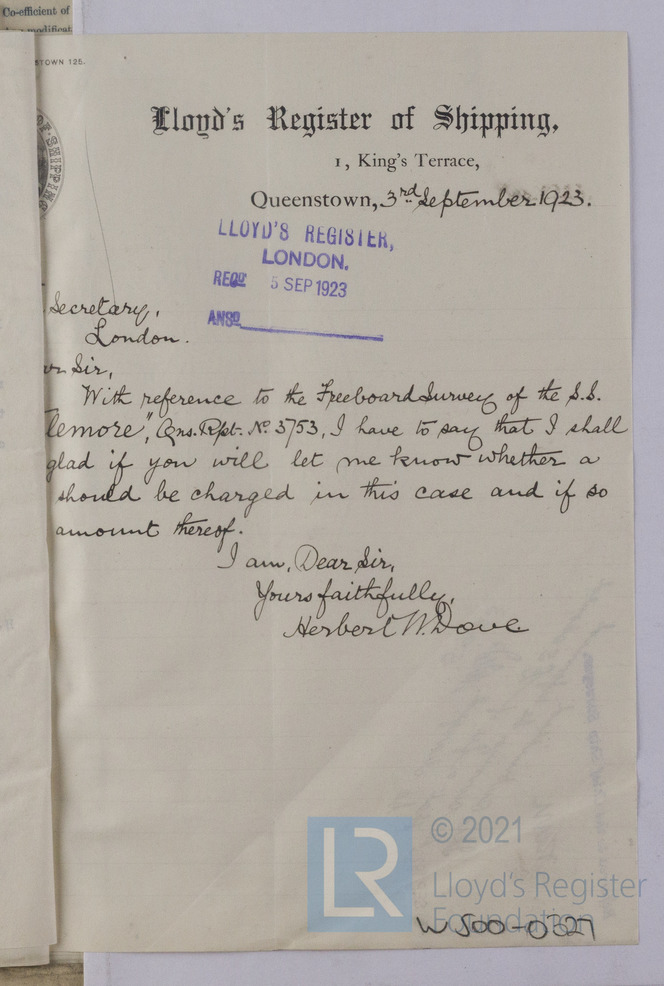 Co-efficient of
modificat
STOWN 125.
Lloyd's Register of Shipping,
1, King's Terrace,
Queenstown, 3rd September 1923.
LLOYD'S REGISTER,
LONDON.
RECD 5 SEP 1923
ANSD
Secretary,
London.
Sir,
With reference to the Freeboard Survey of the S.S.
lemore", Qns. Rpt. No 3753, I have to say that I shall
glad if you will let me know whether a
should be charged in this case and if so
amount thereof.
I am, Dear Sir,
Yours faithfully,
Herbert W. Dove
LR
© 2021
Lloyd's Register
Foundation
W500-0327